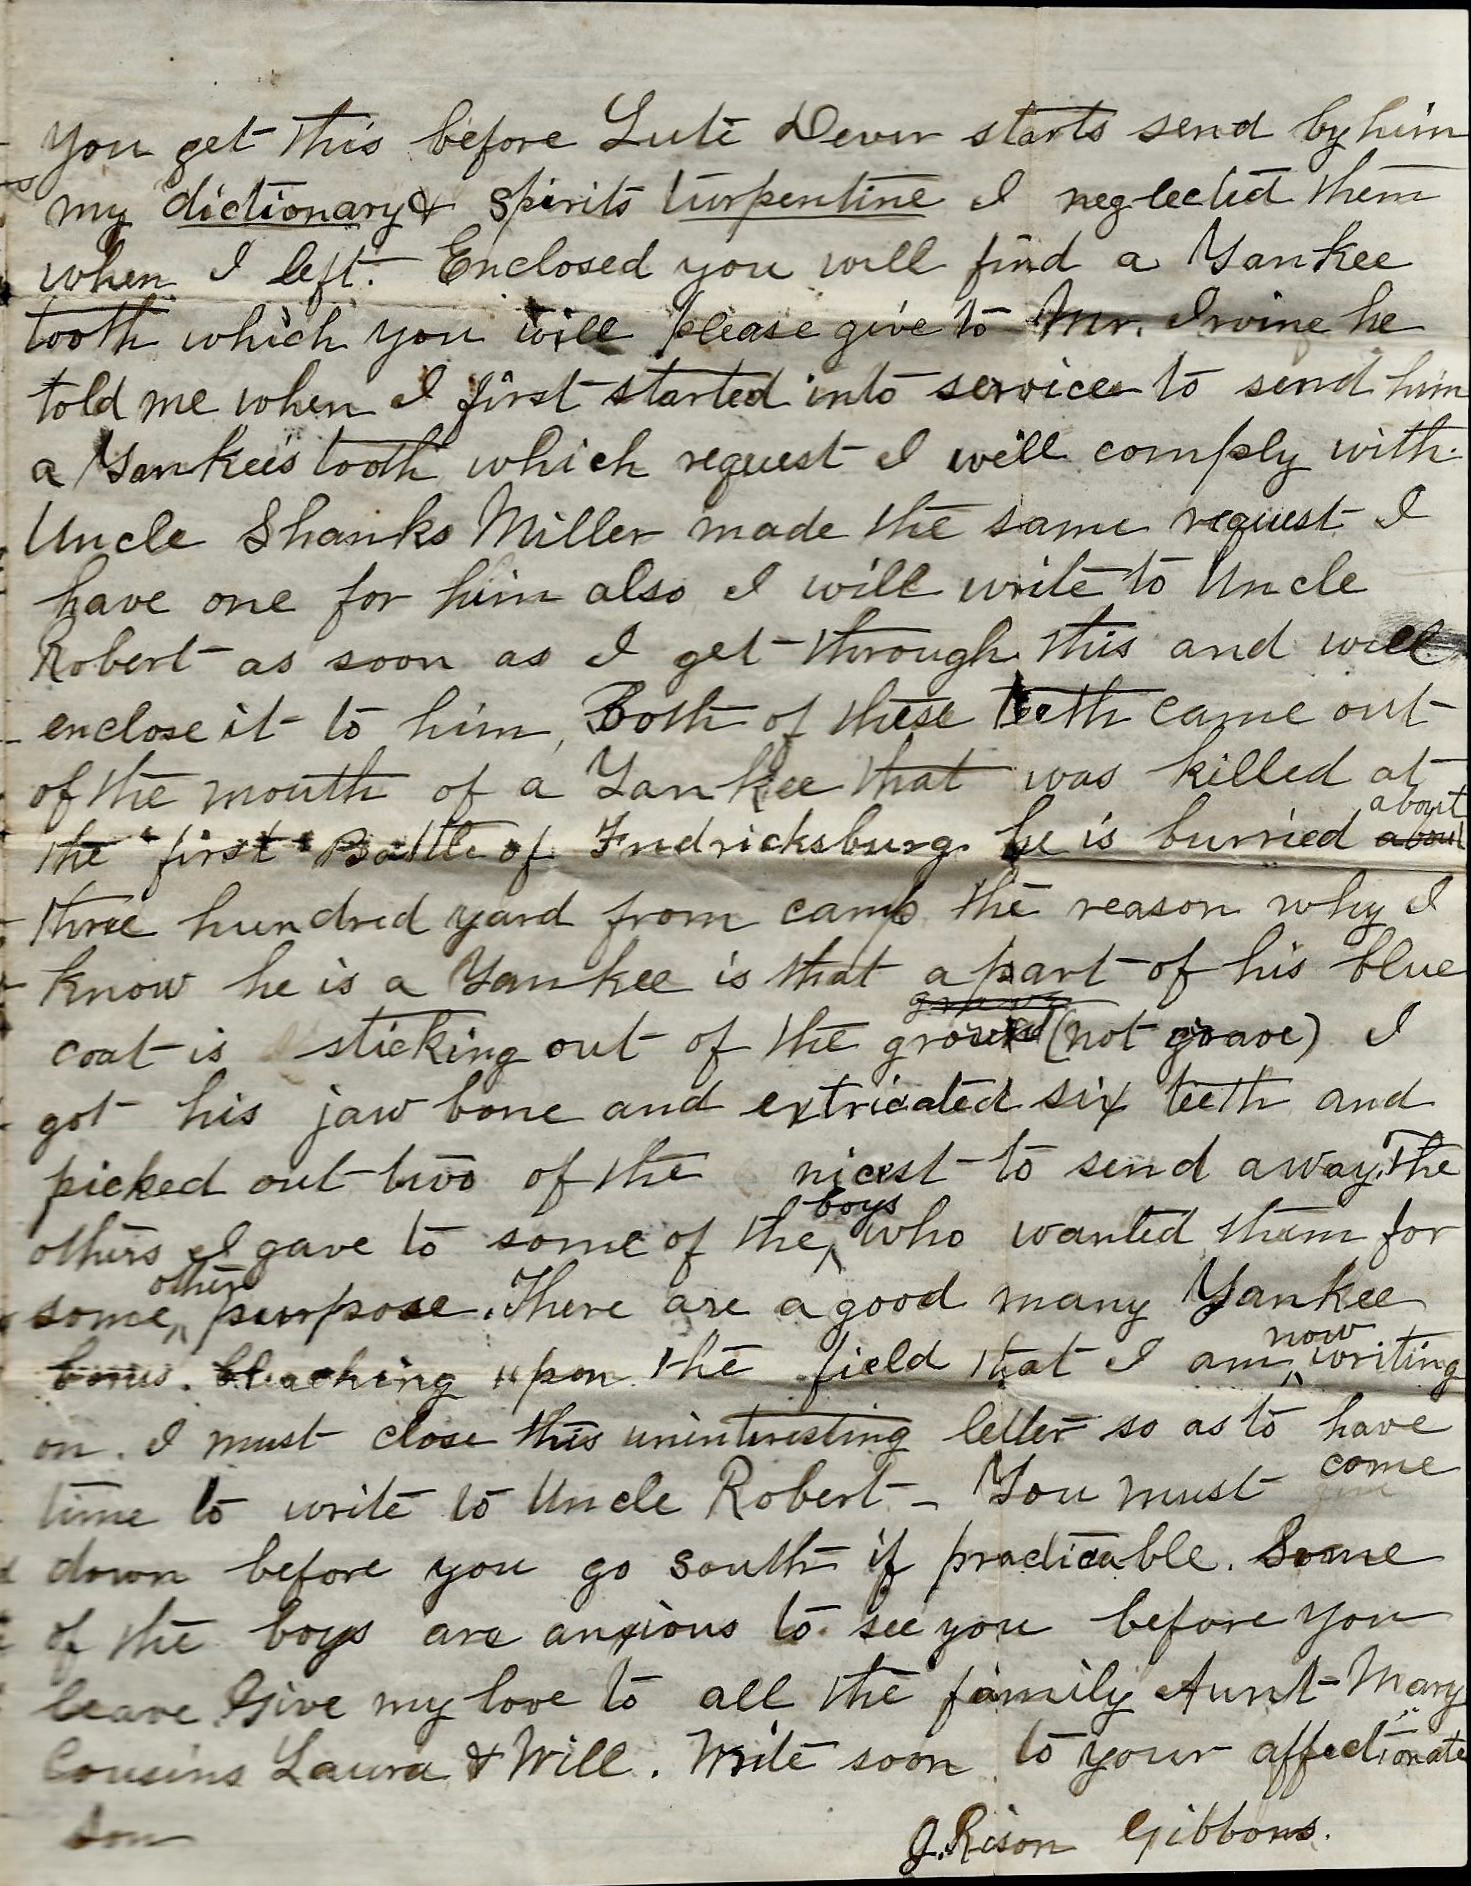 you get this before Lute Dever starts send by him
my dictionary & spirits turpentine I neglected them
when I left. Enclosed you will find a Yankee
tooth which you will please give to Mr. Irvine he
told me when I first started into service to send him
a Yankee's tooth which request I will comply with.
Uncle Shanks Miller made the same request I
have one for him also I will write to Uncle
Robert as soon as I get through this and will
enclose it to him, Both of these teeth came out
of the mouth of a Yankee that was killed at
about
the "first" Battle of Fredricksburg. he is burried about
three hundred yard from camp the reason why I
know he is a Yankee is that a part of his blue
grave
coat is sticking out of the ground (not grave) I
got his jaw bone and extricated six teeth and
picked out two of the nicest to send away. The
boys
others I gave to some of the who wanted them for
other
some purpose. There are a good many Yankee
now
bones bleaching upon the field that I am writing
on. I must close this uninteresting letter so as to have
come
time to write to Uncle Robert - You must
down before you go south if practicable. Some
of the boys are anxious to see you before you
leave Give my love to all the family Aunt Mary
Cousins Laura & Will. Write soon to your affectionate
son
J. Rison Gibbons.